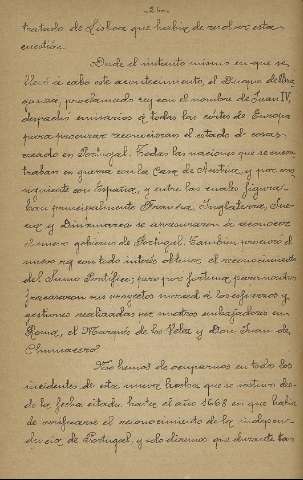 -26-
tratado de Lisboa que habia de resolver esta
cuestión.
Desde el instante mismo en que se
llevó á cabo este acontecimiento, el Duque de Bra
ganza, proclamado rey con el nombre de Juan IV,
despachó emisarios á todas las córtes de Europa
para procurar reconocieran el estado de cosas
creado en Portugal. Todas las naciones que se encon
traban en guerra con la Casa de Austria, y por con
siguiente con España, y entre las cuales figura
ban principalmente Francia, Inglaterra, Sue
cia y Dinamarca se apresuraron á reconocer
el nuevo gobierno de Portugal. Tambien procuró el
nuevo rey con todo interés obtener el reconocimiento
del Sumo Pontífice; pero por fortuna para nosotros
fracasaron sus proyectos merced á los esfuerzos y
gestiones realizadas por nuestros embajadores en
Roma, el Marqués de los Velez y Don Juan de
Chumacero.
No hemos de ocuparnos en todos los
incidentes de esta nueva lucha que se sostuvo des
de la fecha citada hasta el año 1668 en que habia
de verificarse el reconocimiento de la indepen
dencia de Portugal, y solo diremos que durante tan